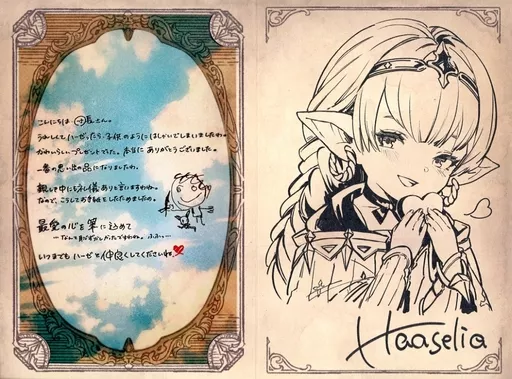 こんにちは 団長さん。
うれしくて ハーゼったら 子供のように はしゃいでしまいましたわ。
かわいらしいプレゼントでした。本当に ありがとうございました。
一番の思い出の品になりましたわ。
親しき中にも礼儀ありと言いますわね。
なので、こうしてお手紙をしたためましたの。
最愛の心を 筆に込めて
ーなんて 恥ずかしかったですわね。ふふ…
いつまでも ハーゼと仲良くしてくださいね。
Haaselia